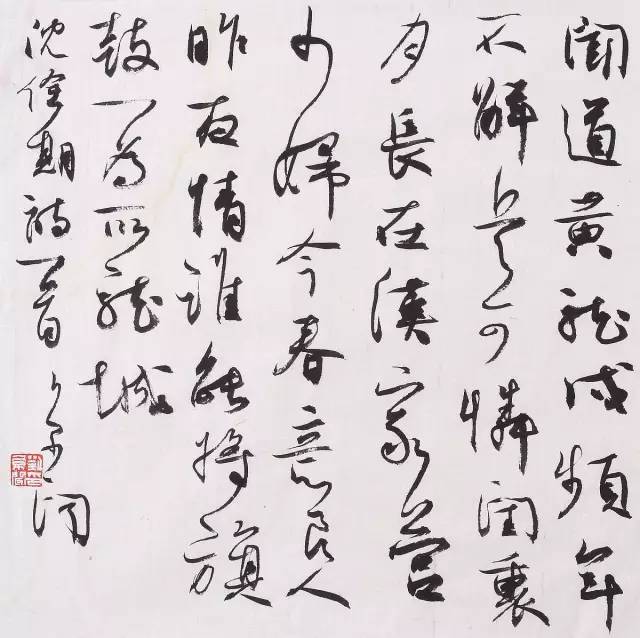 聞道黃龍戍頻年
不解兵可憐閨裏
月長在漢家營
少婦今春意良人
昨夜情誰能將旗
鼓一為取龍城
沈佺期詩一首